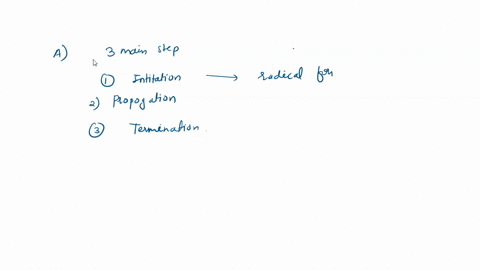 A) 3 main step
① Intitation → radical for
2) Propogation
③ Termination.